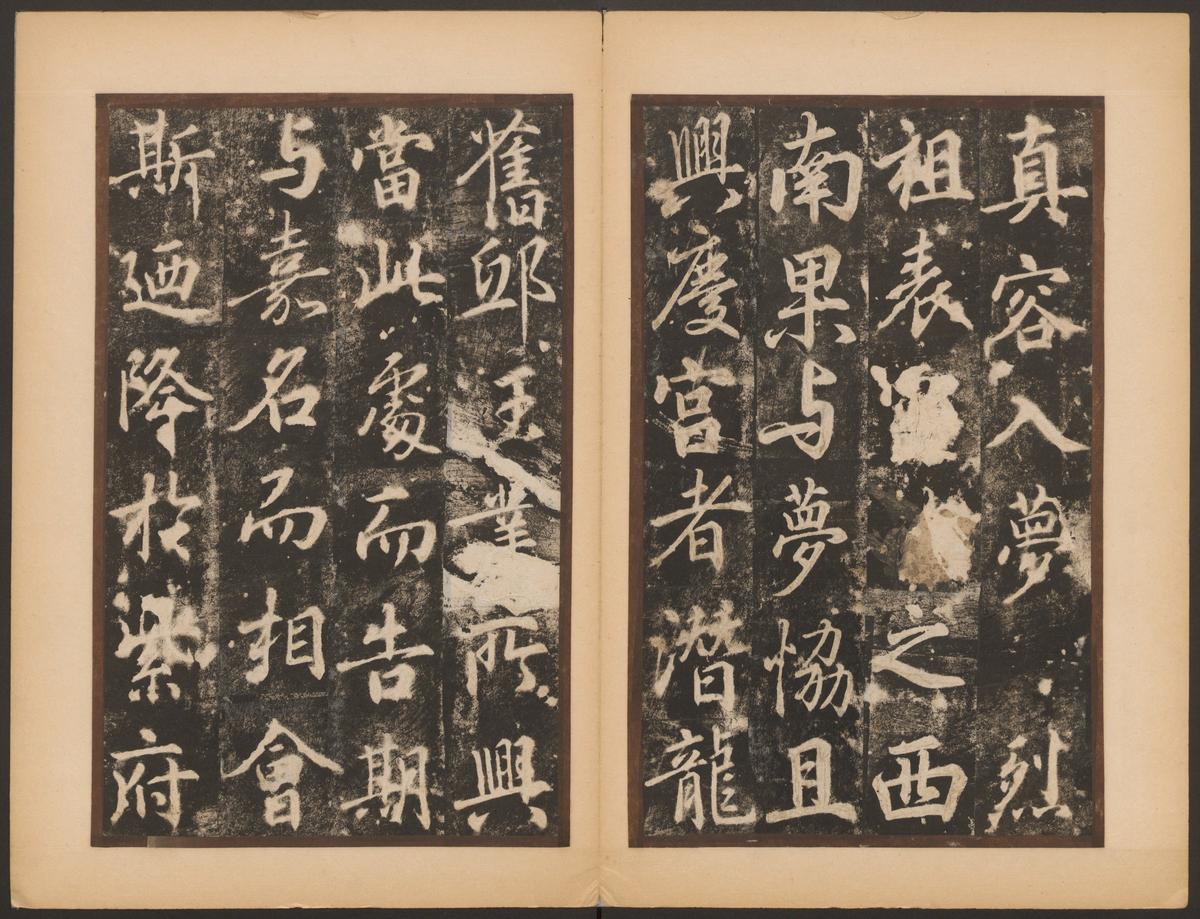 真容入夢烈
祖表之西
南果与夢協且
興慶宮者潛龍
舊邸王業所興
當此處而告期
与嘉名而相會
斯廼降於紫府